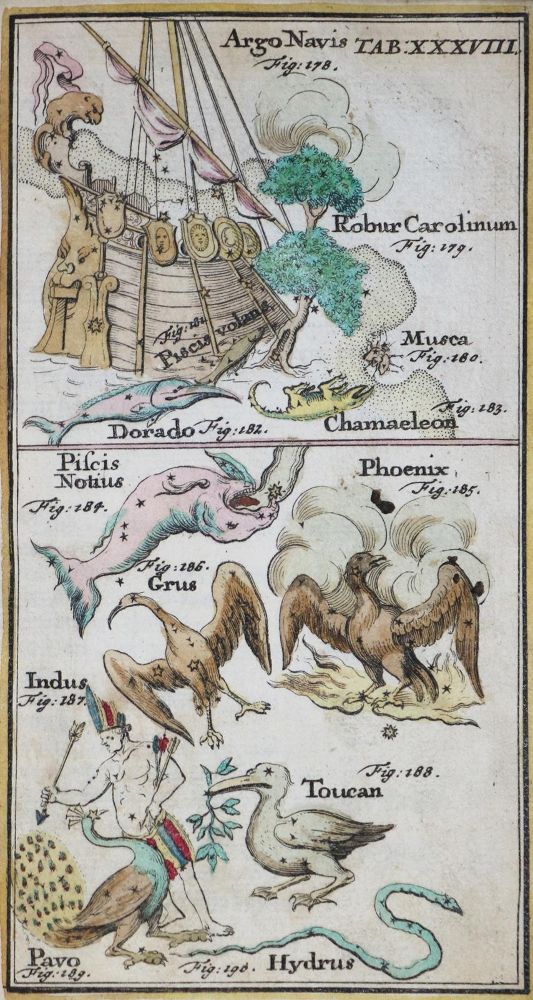 Argo Navis TAB: XXXVIII.
Fig: 178.
Robur Carolinum
Fig: 179.
Fig: 181.
Piscis volans
Musca
Fig: 180.
Dorado Fig: 182.
Chamaeleon Fig: 183.
Piſcis
Notius
Fig: 184.
Phoenix
Fig: 185.
Fig: 186.
Grus
Indus
Fig: 187.
Fig: 188.
Toucan
Pavo
Fig: 189.
Fig: 190. Hydrus